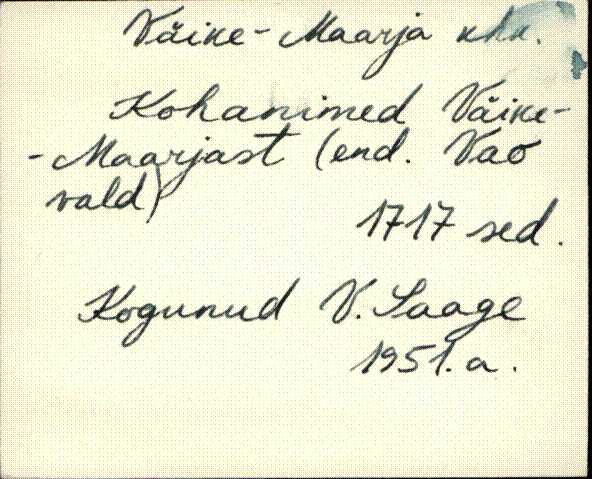 Väike-Maarja khk.
Kohanimed Väike-
-Maarjast (end. Vao
vald)
1717 sed.
Kogunud V. Saage
1951. a.